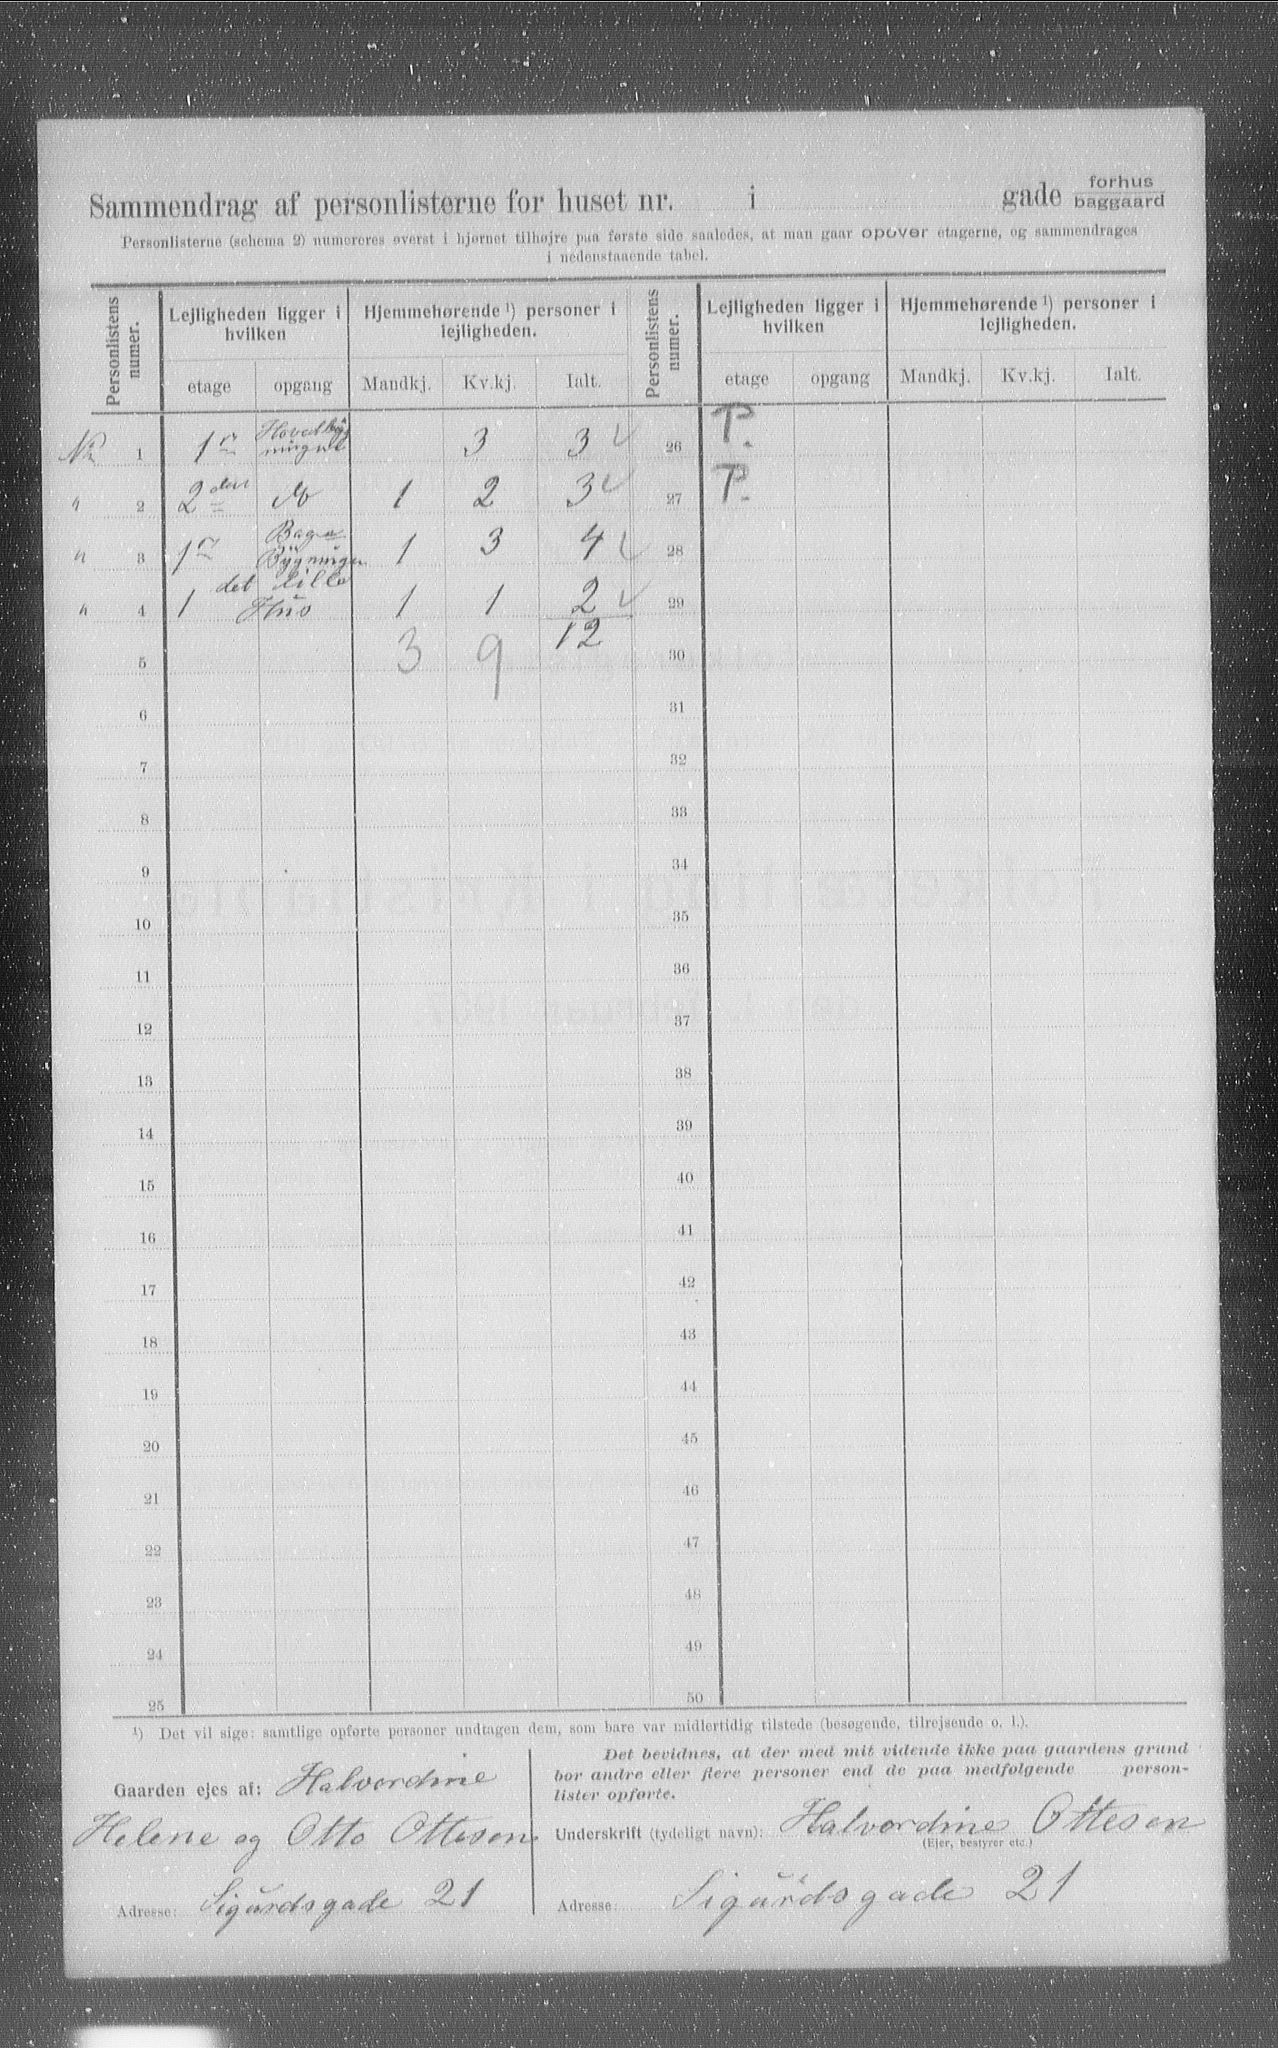 Sammendrag af personlisterne for huset nr. i gade forhus
baggaard
Personlisterne (schema 2) numereres øverst i hjørnet tilhøjre paa første side saaledes, at man gaar opover etagerne, og sammendrages
i nedenstaaende tabel.
Personlistens numer. Lejligheden ligger i hvilken Hjemmehørende ¹) personer i lejligheden. Personlistens numer. Lejligheden ligger i hvilken Hjemmehørende ¹) personer i lejligheden.
etage opgang Mandkj. Kv.kj. Ialt. etage opgang Mandkj. Kv.kj. Ialt.
No 1 1ste Hovedbygningen 3 3 ✓ 26 P.
" 2 2den do 1 2 3 ✓ 27 P.
" 3 1ste Bag Bygningen 1 3 4 ✓ 28
" 4 1 det lille Hus 1 1 2 ✓ 29
5 3 9 12 30
6 31
7 32
8 33
9 34
10 35
11 36
12 37
13 38
14 39
15 40
16 41
17 42
18 43
19 44
20 45
21 46
22 47
23 48
24 49
25 50
¹) Det vil sige: samtlige opførte personer undtagen dem, som bare var midlertidig tilstede (besøgende, tilrejsende o. l.).
Gaarden ejes af: Halvordine
Helene og Otto Ottesen
Adresse: Sigurdsgade 21
Det bevidnes, at der med mit vidende ikke paa gaardens grund
bor andre eller flere personer end de paa medfølgende person-
lister opførte.
Underskrift (tydeligt navn): Halvordine Ottesen
(Ejer, bestyrer etc.)
Adresse: Sigurdsgade 21